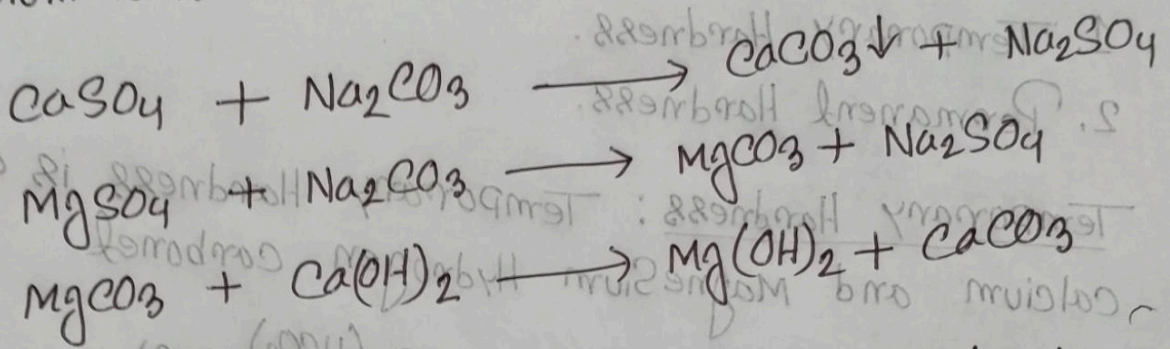 CaSO4 + Na2CO3 → CaCO3↓ + Na2SO4
MgSO4 + Na2CO3 → MgCO3 + Na2SO4
MgCO3 + Ca(OH)2 → Mg(OH)2 + CaCO3